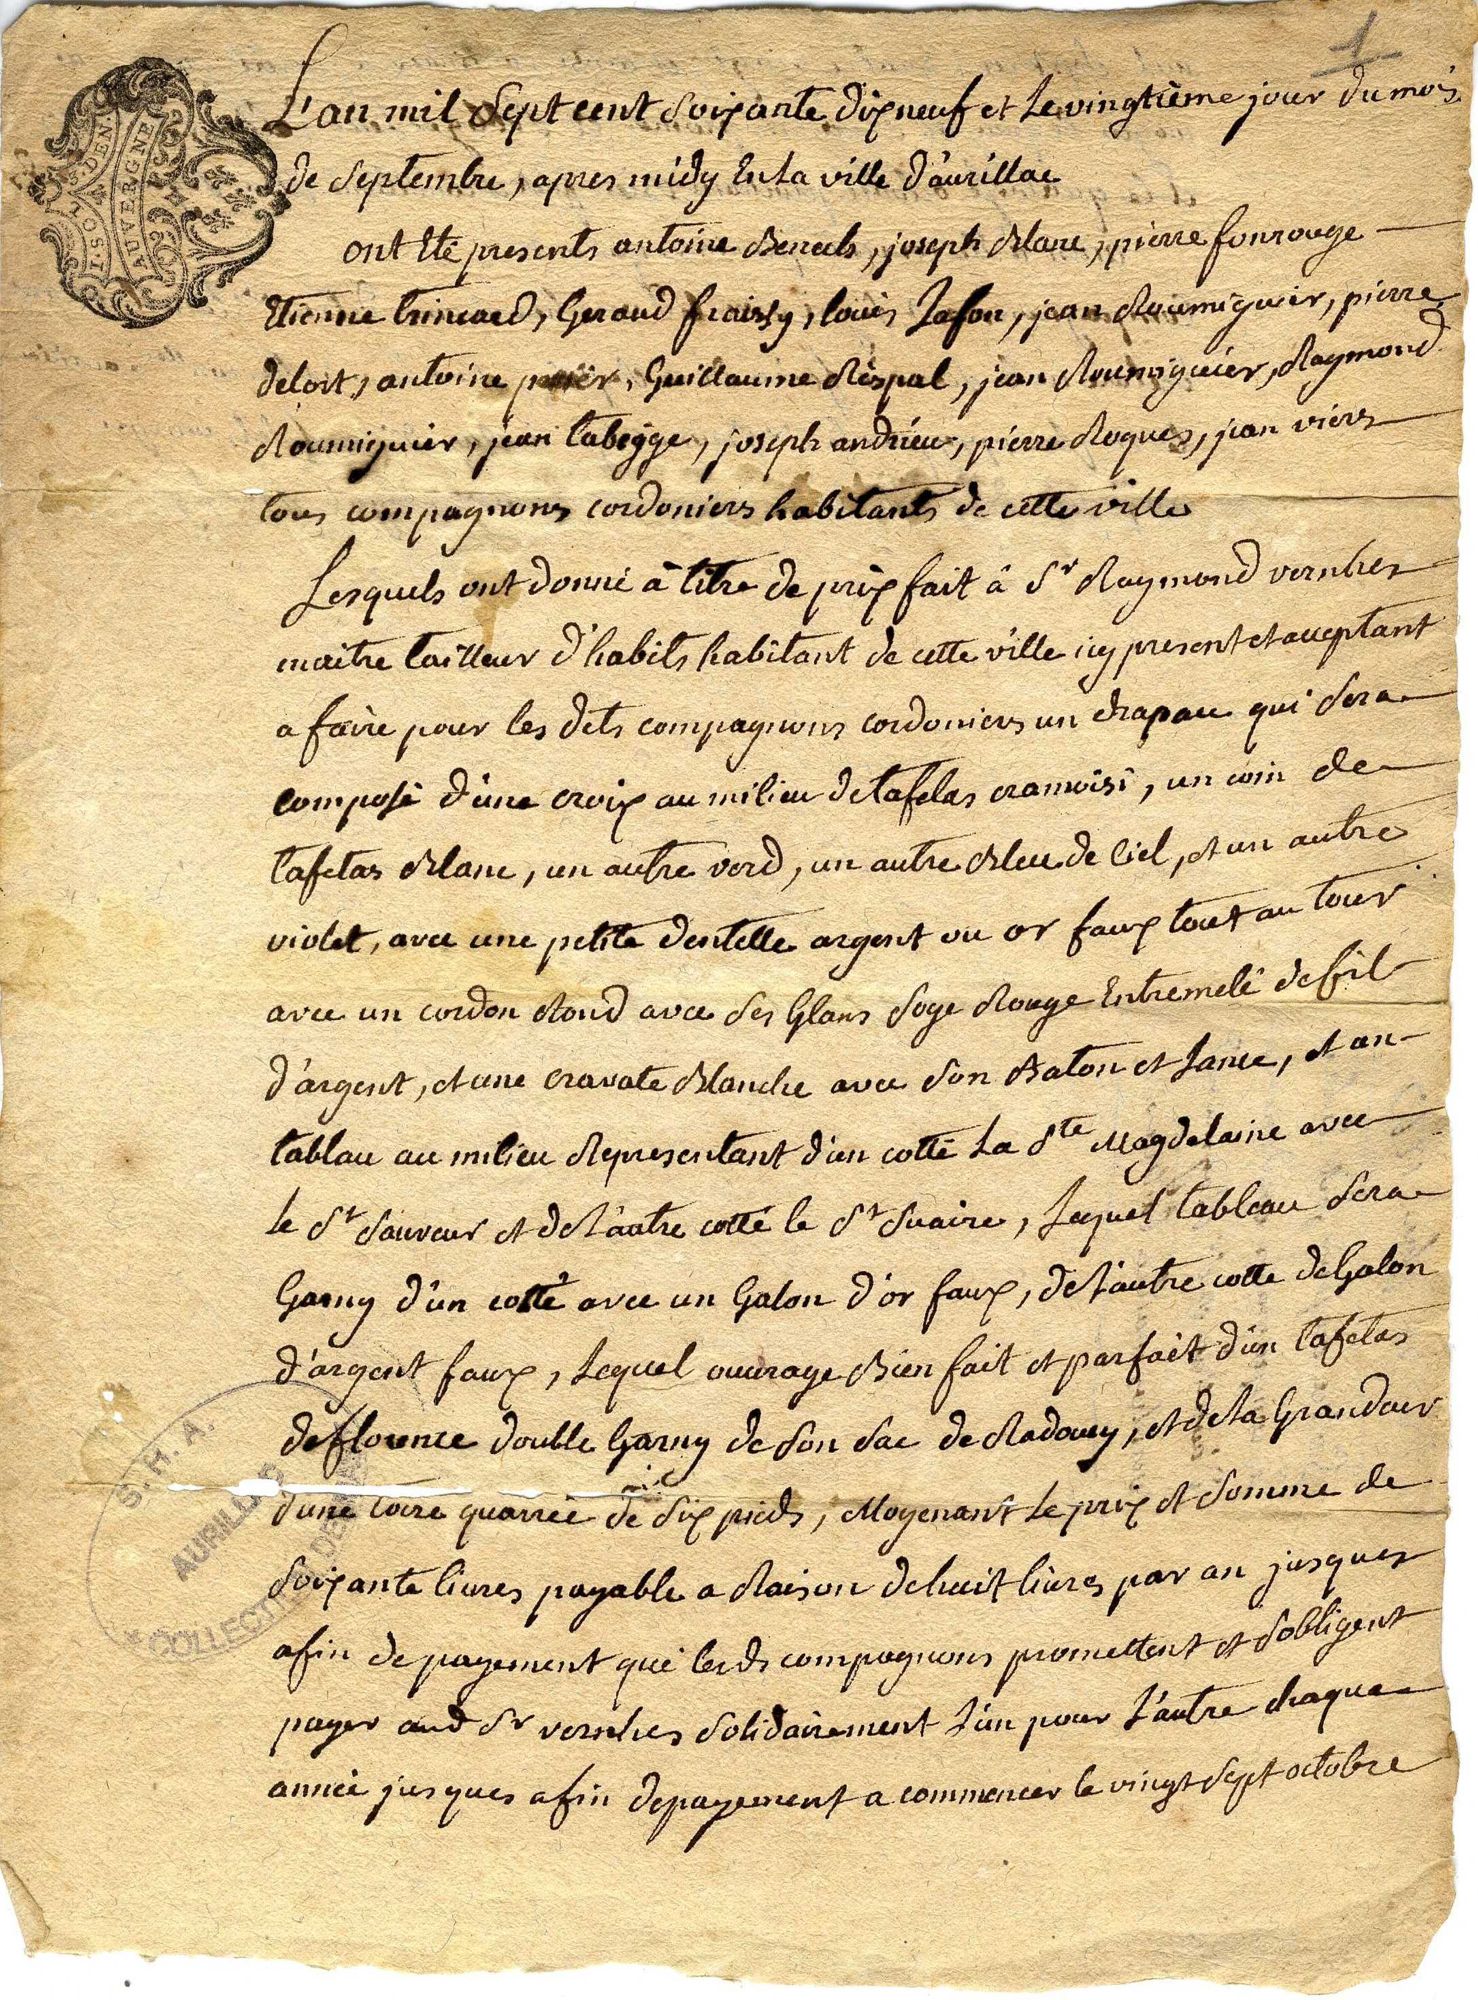 1
I. SOL. 4 S. DEN.
AUVERGNE
L'an mil sept cent soixante dixneuf et le vingtième jour du mois
de septembre, apres midy en la ville d'aurillac
ont été presents antoine Benech, joseph Blanc, pierre fonrouge
Etienne trincard, Geraud fraissy, louis Lafon, jean Roumiguier, pierre
delort, antoine Guillaume Respal, jean Roumiguier, Raymond
Roumiguier, jean labeyge, joseph andrieu, pierre Roques, jean viers
tous compagnons cordoniers habitants de cette ville
Lesquels ont donné à titre de prix fait à Sr Raymond vernhes
maitre tailleur d'habits habitant de cette ville icy present et acceptant
a faire pour les dets compagnons cordoniers un drapau qui sera
composé d'une croix au milieu de tafetas cramoisi, un coin de
tafetas Blanc, un autre verd, un autre Bleu de Ciel, et un autre
violet, avec une petite dentelle argent ou or faux tout au tour
avec un cordon Rond avec ses Glans soye Rouge Entremelé de fil
d'argent, et une cravate Blanche avec son Baton et Lance, et un
tablau au milieu Representant d'un cotté La Ste Magdelaine avec
le St Sauveur et de l'autre cotté le St Suaire, Lequel tableau sera
Garny d'un cotté avec un Galon d'or faux, de l'autre cotte de Galon
d'argent faux, Lequel ouvrage Bien fait et parfait d'un tafetas
de florence double Garny de son sac de Radouey, et de la Grandeur
d'une toire quarrée de six pieds, Moyenant le prix et somme de
soixante livres payable a Raison de huit livres par an jusques
afin de payement que lesds compagnons promettent et s'obligent
payer aud Sr vernhes solidairement l'un pour l'autre chaque
année jusques afin de payement a commencer le vingt sept octobre
S. H. A.
AURILLAC
COLLECTION